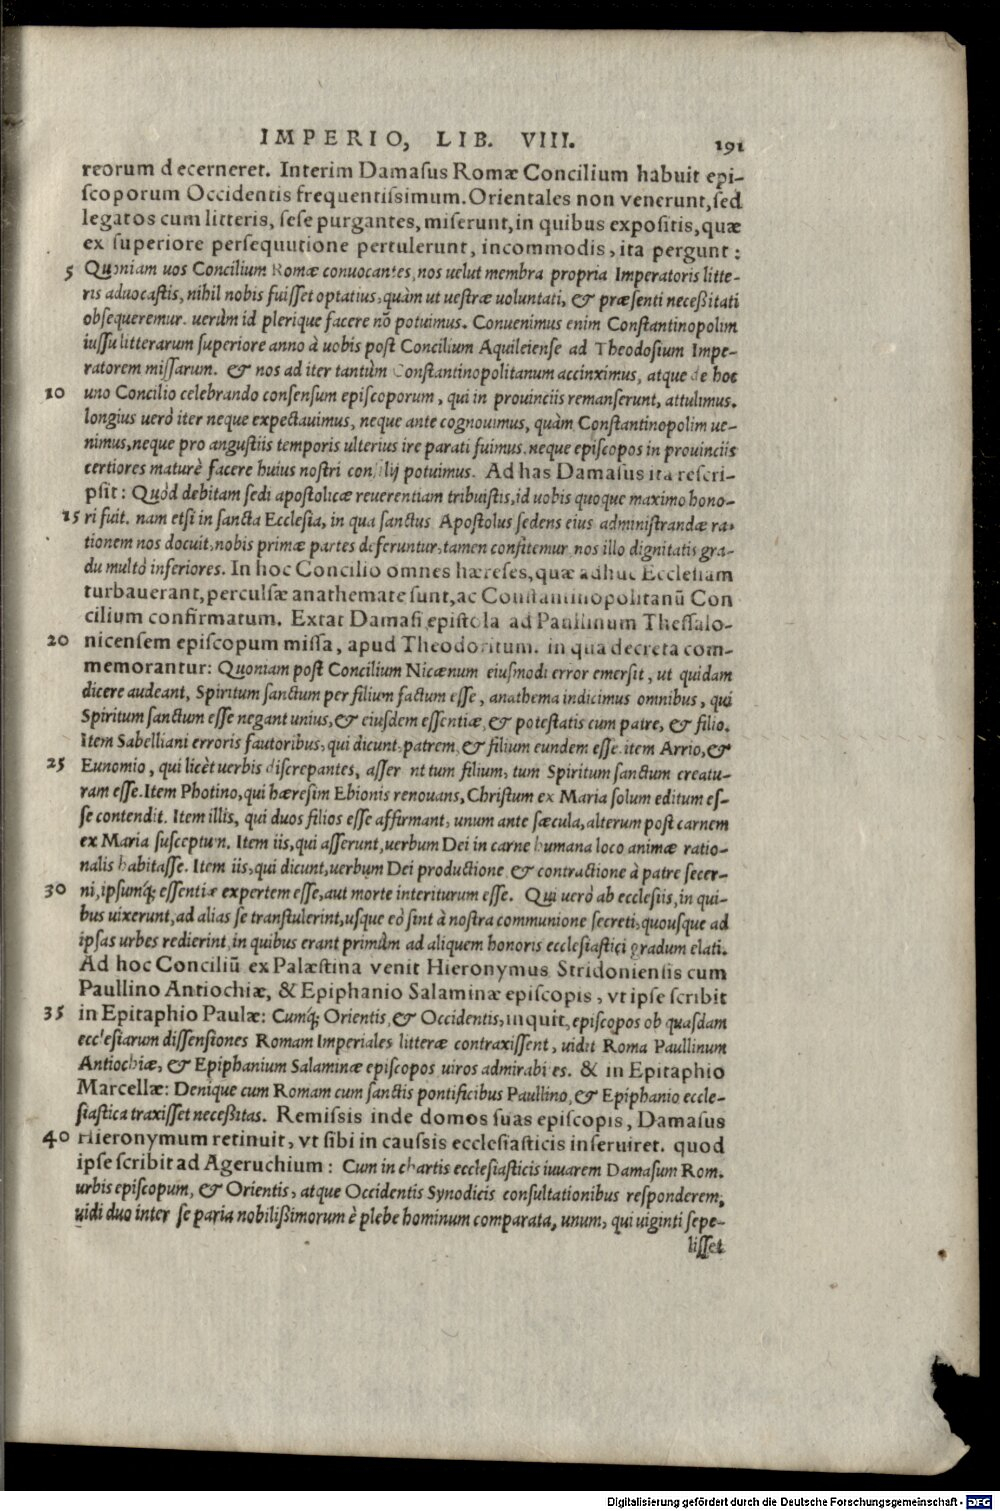 IMPERIO, LIB. VIII. 191
reorum decerneret. Interim Damasus Romæ Concilium habuit epi-
scoporum Occidentis frequentissimum. Orientales non venerunt, sed
legatos cum litteris, sese purgantes, miserunt, in quibus expositis, quæ
ex superiore persequutione pertulerunt, incommodis, ita pergunt:
5 Quoniam uos Concilium Romæ conuocantes, nos uelut membra propria Imperatoris litte-
ris aduocastis, nihil nobis fuisset optatius, quàm ut uestræ uoluntati, & præsenti necessitati
obsequeremur. uerùm id plerique facere nō potuimus. Conuenimus enim Constantinopolim
iussu litterarum superiore anno à uobis post Concilium Aquileiense ad Theodosium Impe-
ratorem missarum. & nos ad iter tantùm Constantinopolitanum accinximus, atque de hoc
10 uno Concilio celebrando consensum episcoporum, qui in prouinciis remanserunt, attulimus.
longius uerò iter neque expectauimus, neque ante cognouimus, quàm Constantinopolim ue-
nimus, neque pro angustiis temporis ulterius ire parati fuimus. neque episcopos in prouinciis
certiores maturè facere huius nostri consilij potuimus. Ad has Damasus ita rescri-
psit: Quòd debitam sedi apostolicæ reuerentiam tribuistis, id uobis quoque maximo hono-
15 ri fuit. nam etsi in sancta Ecclesia, in qua sanctus Apostolus sedens eius administrandæ ra-
tionem nos docuit, nobis primæ partes deferuntur, tamen confitemur, nos illo dignitatis gra-
du multò inferiores. In hoc Concilio omnes hæreses, quæ adhuc Ecclesiam
turbauerant, perculsæ anathemate sunt, ac Constantinopolitanū Con
cilium confirmatum. Extat Damasi epistola ad Paullinum Thessalo-
20 nicensem episcopum missa, apud Theodoritum. in qua decreta com-
memorantur: Quoniam post Concilium Nicænum eiusmodi error emersit, ut quidam
dicere audeant, Spiritum sanctum per filium factum esse, anathema indicimus omnibus, qui
Spiritum sanctum esse negant unius, & eiusdem essentiæ, & potestatis cum patre, & filio.
Item Sabelliani erroris fautoribus, qui dicunt, patrem, & filium eundem esse. item Arrio, &
25 Eunomio, qui licèt uerbis discrepantes, asserunt tum filium, tum Spiritum sanctum creatu-
ram esse. Item Photino, qui hæresim Ebionis renouans, Christum ex Maria solum editum es-
se contendit. Item illis, qui duos filios esse affirmant, unum ante sæcula, alterum post carnem
ex Maria susceptum. Item iis, qui asserunt, uerbum Dei in carne humana loco animæ ratio-
nalis habitasse. Item iis, qui dicunt, uerbum Dei productione, & contractione à patre secer-
30 ni, ipsumq; essentiæ expertem esse, aut morte interiturum esse. Qui uerò ab ecclesiis, in qui-
bus uixerunt, ad alias se transtulerint, usque eò sint à nostra communione secreti, quousque ad
ipsas urbes redierint, in quibus erant primùm ad aliquem honoris ecclesiastici gradum elati.
Ad hoc Conciliū ex Palæstina venit Hieronymus Stridoniensis cum
Paullino Antiochiæ, & Epiphanio Salaminæ episcopis, vt ipse scribit
35 in Epitaphio Paulæ: Cumq; Orientis, & Occidentis, inquit, episcopos ob quasdam
ecclesiarum dissensiones Romam Imperiales litteræ contraxissent, uidit Roma Paullinum
Antiochiæ, & Epiphanium Salaminæ episcopos uiros admirabiles. & in Epitaphio
Marcellæ: Denique cum Romam cum sanctis pontificibus Paullino, & Epiphanio eccle-
siastica traxisset necessitas. Remissis inde domos suas episcopis, Damasus
40 Hieronymum retinuit, vt sibi in caussis ecclesiasticis inseruiret. quod
ipse scribit ad Ageruchium: Cum in chartis ecclesiasticis iuuarem Damasum Rom.
urbis episcopum, & Orientis, atque Occidentis Synodicis consultationibus responderem,
uidi duo inter se paria nobilissimorum è plebe hominum comparata, unum, qui uiginti sepe-
lisset
Digitalisierung gefördert durch die Deutsche Forschungsgemeinschaft - DFG